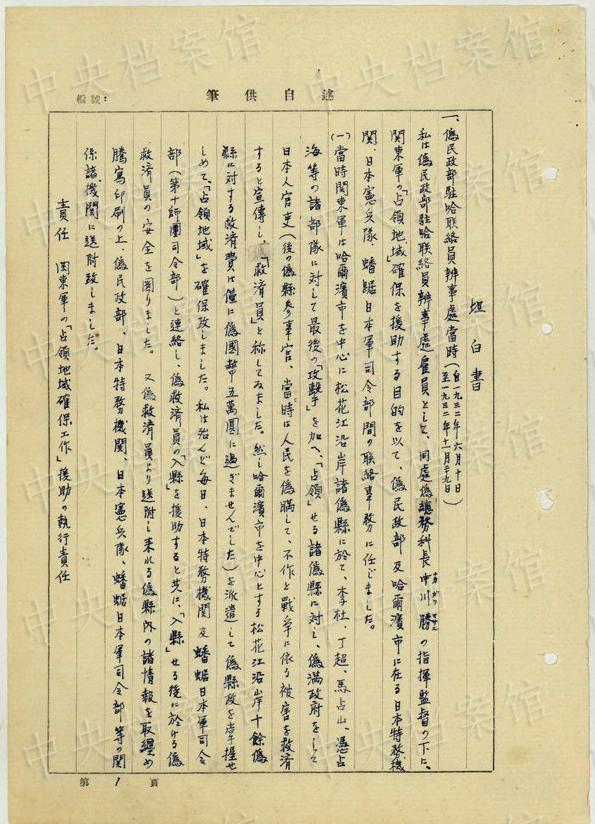 述自供筆
編號:
坦白書
一、偽民政部駐哈联絡員辨事處當時(自一九三二年六月十日 至一九三二年十一月十九日)
私は偽民政部駐哈联絡員辨事處雇員として、同処偽總務科長中川勝の指揮監督の下に、
関東軍の「占領地域」確保を援助する目的を以て、偽民政部及哈爾濱市に在る日本特務機
関、日本憲兵隊、蟠踞日本軍司令部間の联絡事務に任じました。
(一)當時関東軍は哈爾濱市を中心に松花江沿岸諸偽縣に於て、李杜、丁超、馬占山、馮占
海等の諸部隊に対して最後の「攻撃」を加へ、「占領」せる諸偽縣に対し、偽満政府をして
日本人官吏(後の偽縣参事官、當時は人民を偽瞞して、不作と戦争に依る被害を救済
すると宣傳し、「救済員」と称してゐました。然し哈爾濱市を中心とする松花江沿岸十餘偽
縣に対する救済費は僅に偽國幣五萬圓に過ぎませんでした)を派遣して偽縣政を掌握せ
しめて、「占領地域」を確保致しました。私は殆んど毎日、日本特務機関及蟠踞日本軍司令
部(第十師團司令部)と連絡し、偽救済員の「入縣」を援助すると共に、「入縣」せる後に於ける偽
救済員の安全を圖りました。又偽救済員より送附し来れる偽縣内の諸情報を取纏め
騰寫印刷の上、偽民政部、日本特務機関、日本憲兵隊、蟠踞日本軍司令部等の関
係諸機関に送附致しました。
責任 関東軍の「占領地域確保工作」援助の執行責任
第1頁
中央档案馆